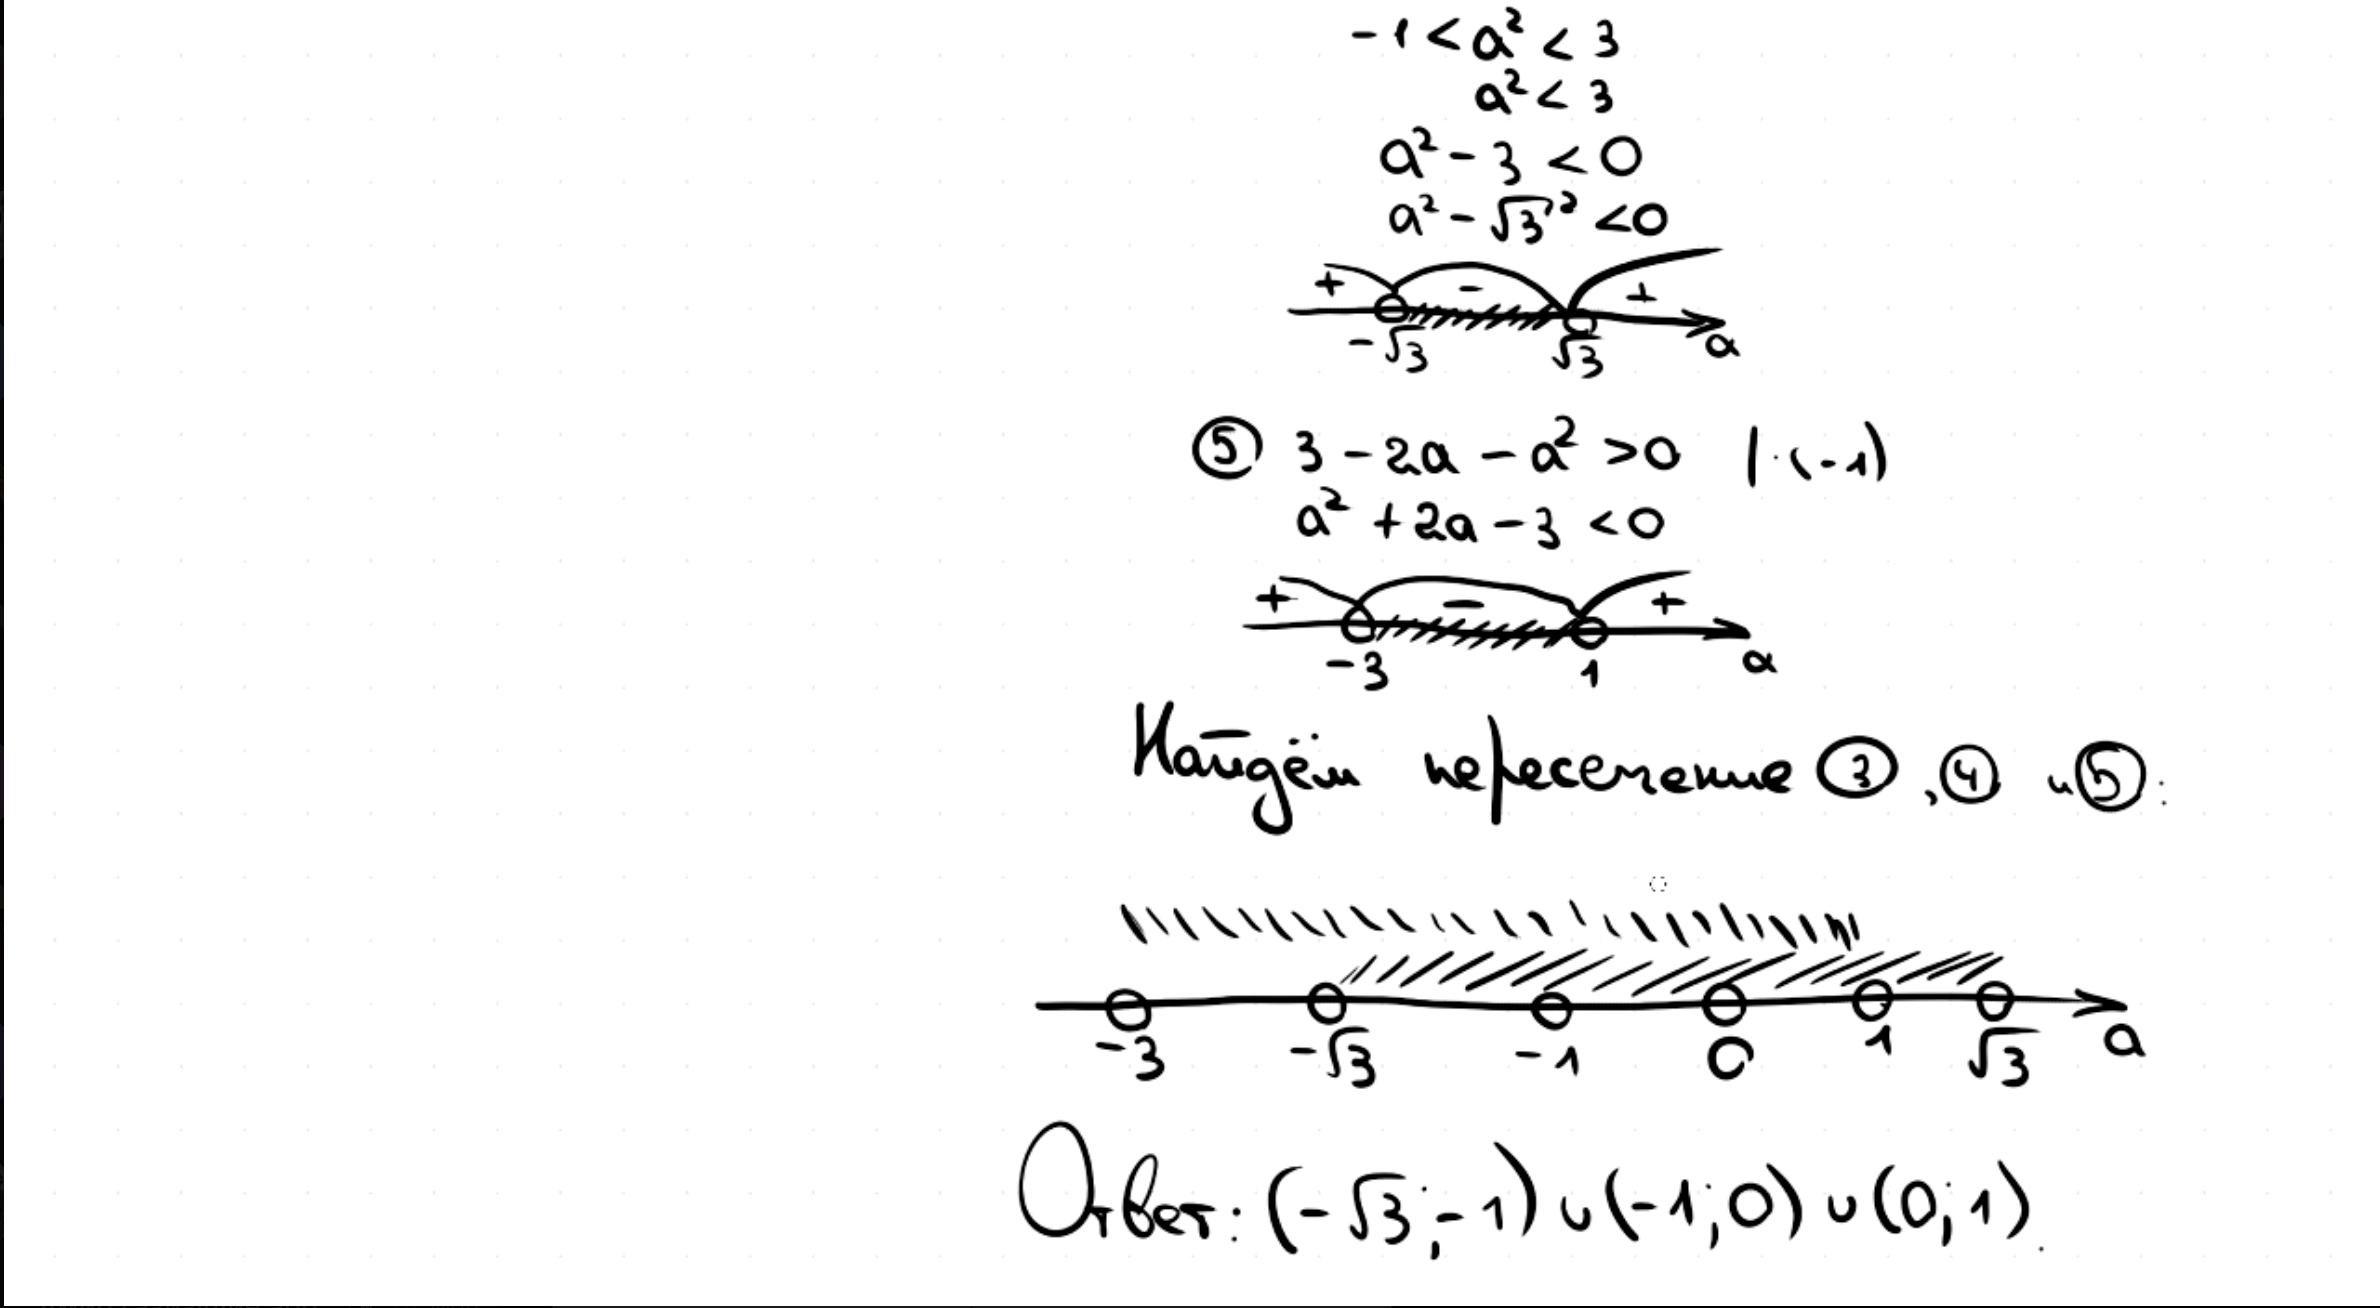 -1 < a² < 3
a² < 3
a² - 3 < 0
a² - √3² < 0
+ - +
-√3 √3 a
⑤ 3 - 2a - a² > 0 | · (-1)
a² + 2a - 3 < 0
+ - +
-3 1 a
Найдём пересечение ③, ④ и ⑤:
-3 -√3 -1 0 1 √3 a
Ответ: (-√3; -1) ∪ (-1; 0) ∪ (0; 1).